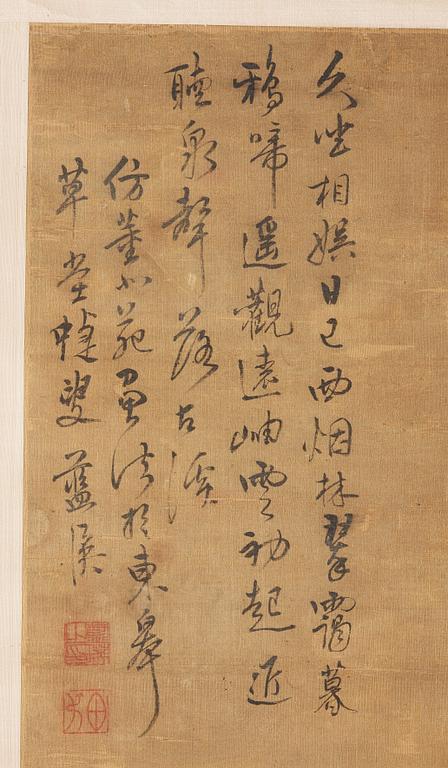 久坐相娯日已西烟林翠靄暮
鴉啼遥觀遠岫雲初起近
聽泉聲落古溪
仿董北苑畫法於東皋
草堂蜨叟藍瑛